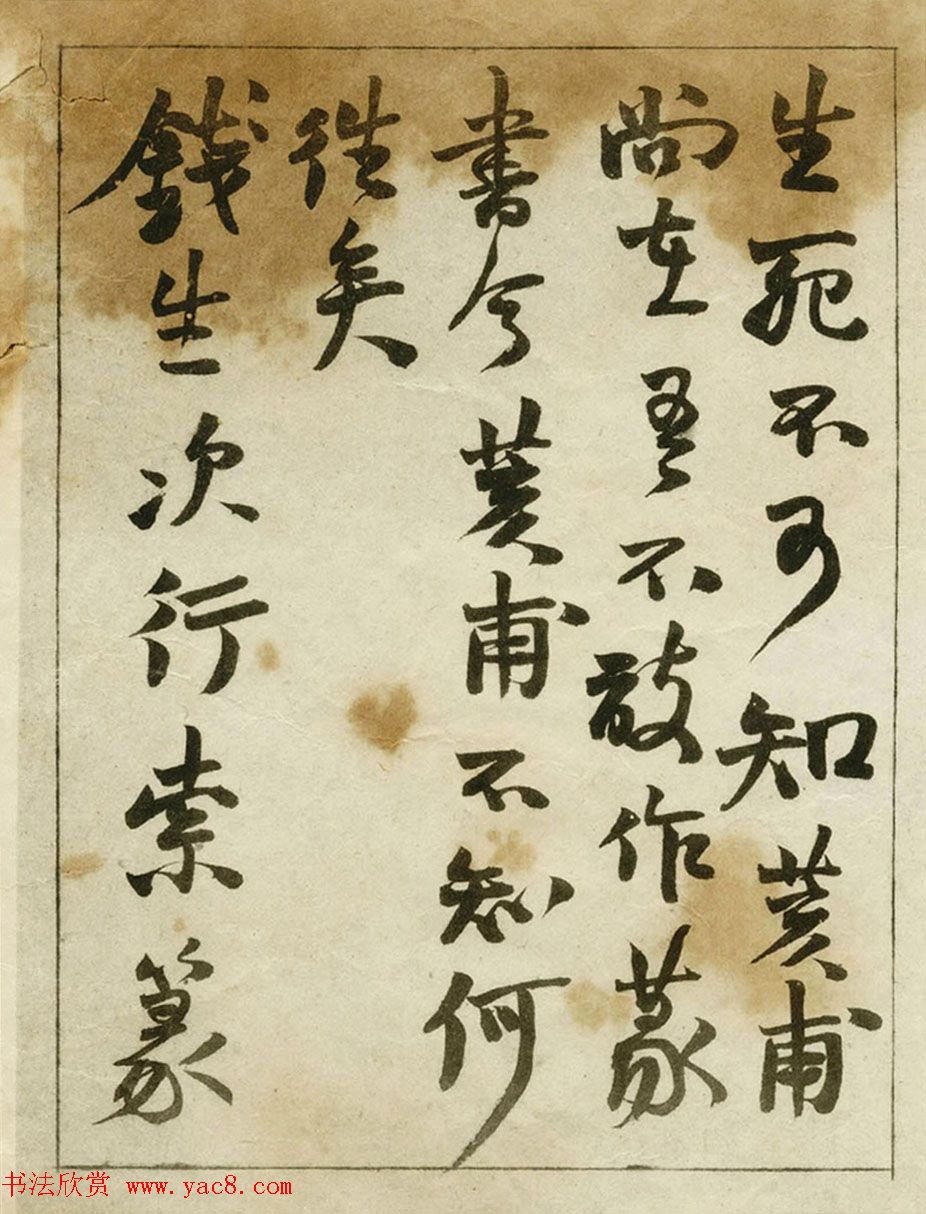 生死不可知黄甫
尚在吾不敢作篆
書今黄甫不知何
往矣
錢生次行索篆
书法欣赏 www.yac8.com